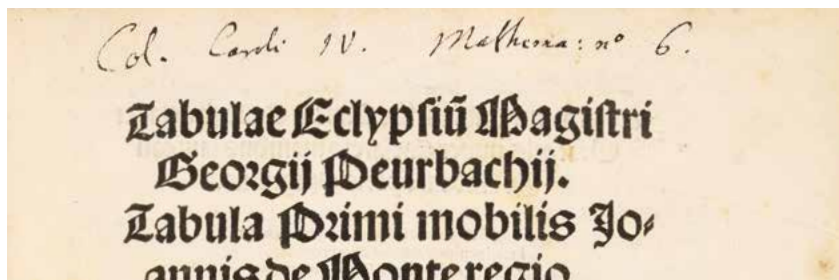 Col. Caroli IV. Mathema: nº 6.
Tabulae Eclypsiũ Magistri
Georgij Peurbachij.
Tabula Primi mobilis Jo⸗
annis de Monteregio